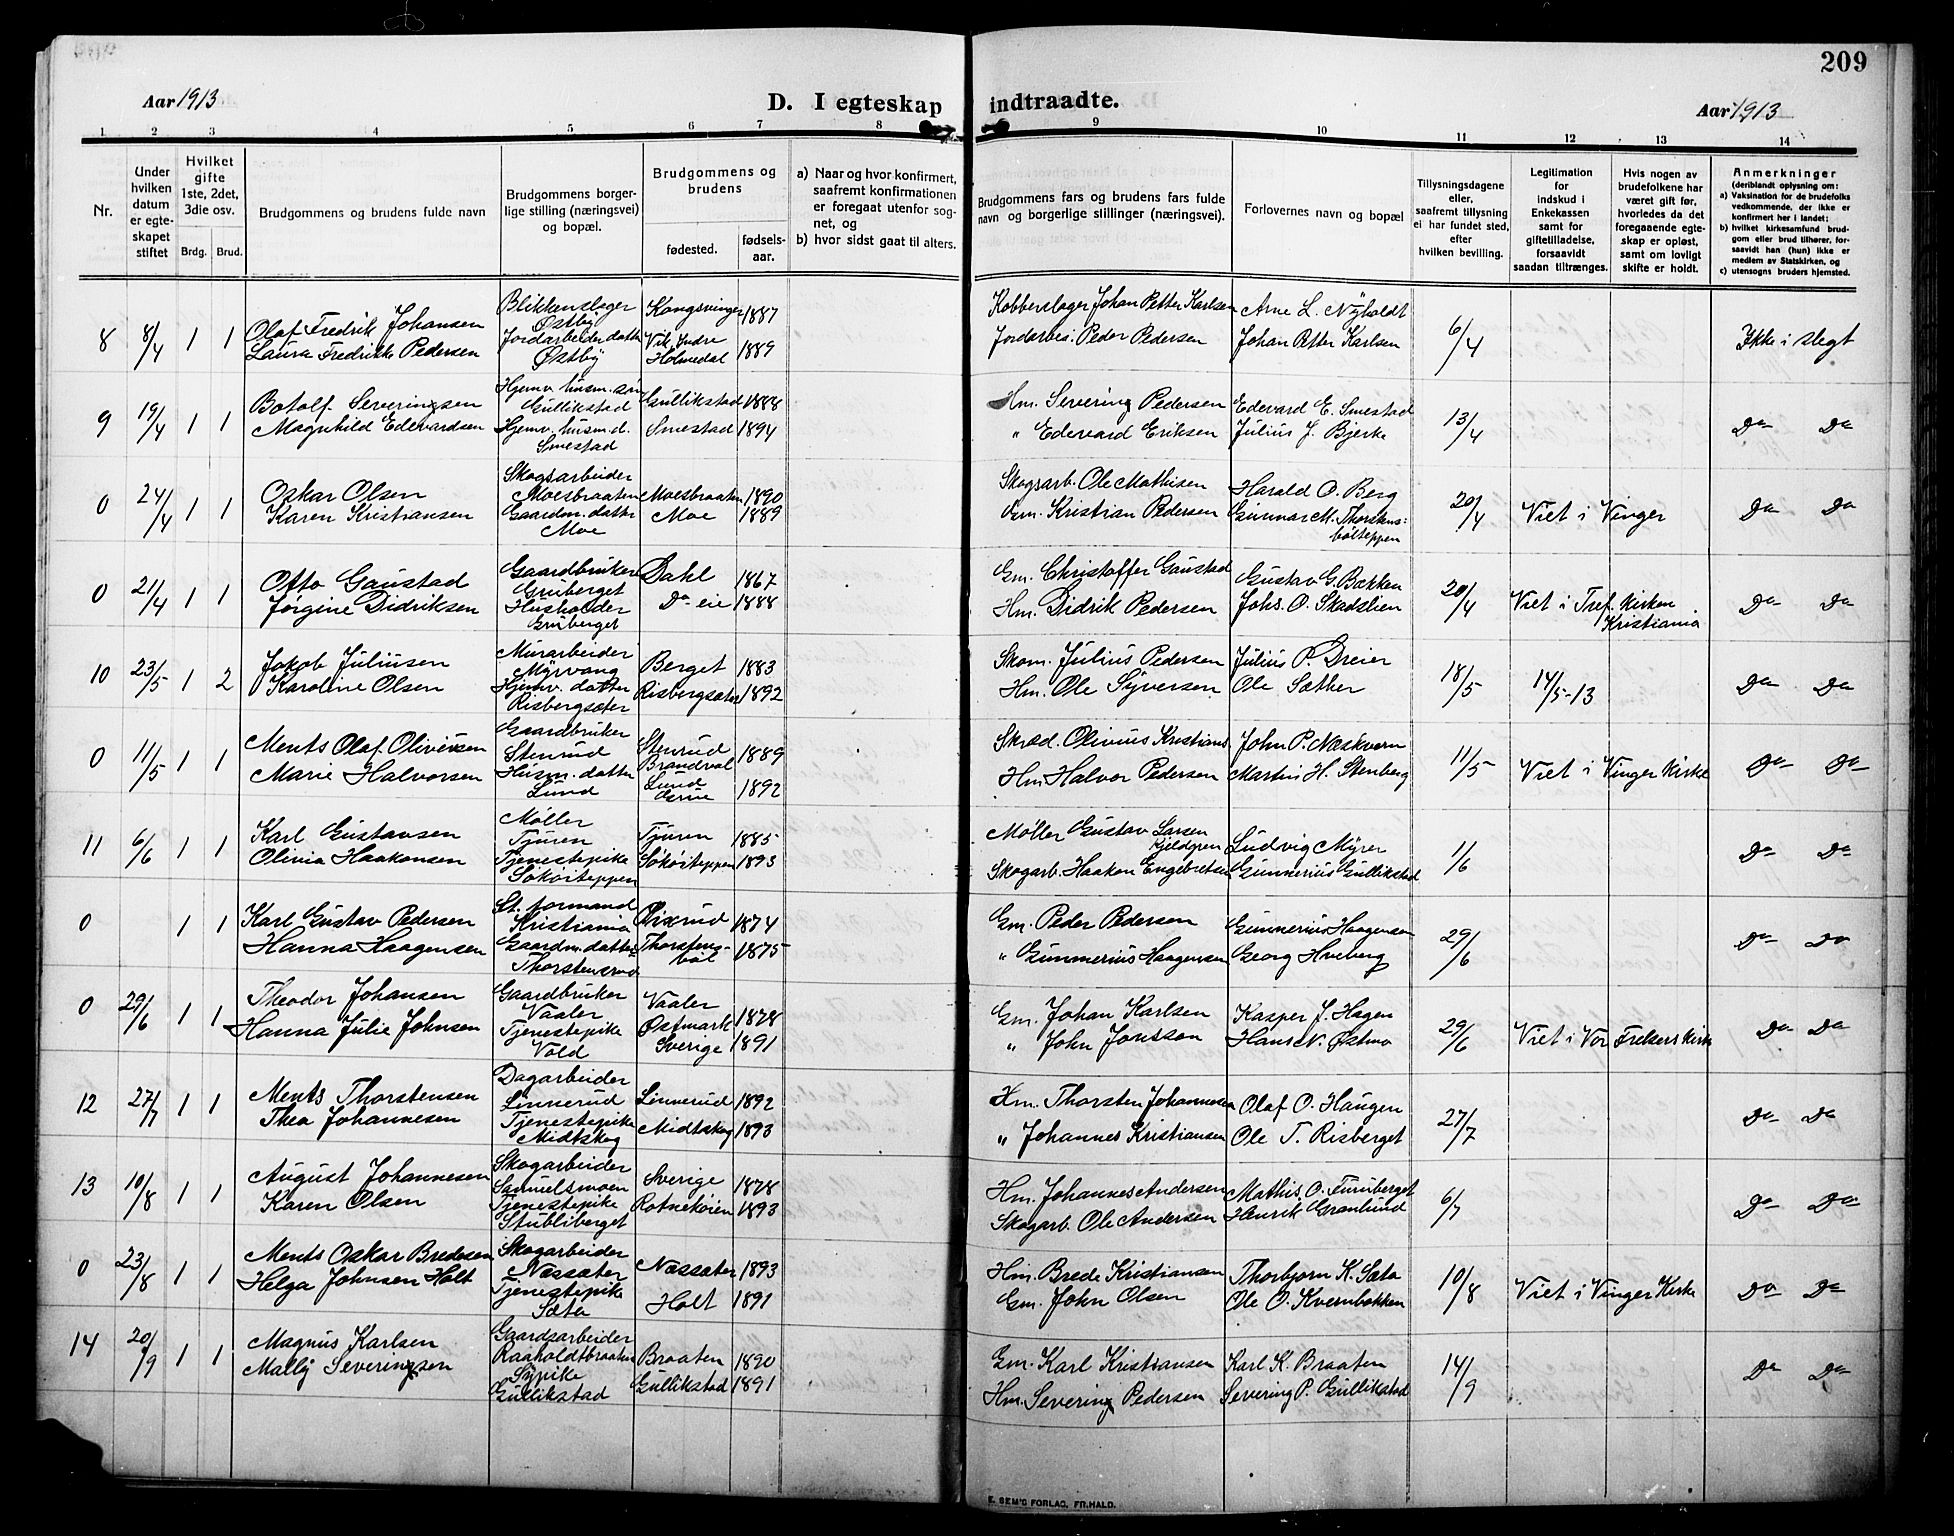 209
Aar 1913 D. I egteskap indtraadte. Aar 1913
1 2 3 4 5 6 7 8 9 10 11 12 13 14
Nr.
Under hvilken datum er egteskapet stiftet
Hvilket gifte 1ste, 2det, 3die osv.
Brdg. Brud.
Brudgommens og brudens fulde navn
Brudgommens borgerlige stilling (næringsvei) og bopæl.
Brudgommens og brudens
fødested.
fødselsaar.
a) Naar og hvor konfirmert, saafremt konfirmationen er foregaat utenfor sognet, og
b) hvor sidst gaat til alters.
Brudgommens fars og brudens fars fulde navn og borgerlige stillinger (næringsvei).
Forlovernes navn og bopæl
Tillysningsdagene eller, saafremt tillysning ei har fundet sted, efter hvilken bevilling.
Legitimation for indskud i Enkekassen samt for giftetilladelse, forsaavidt saadan tiltrænges.
Hvis nogen av brudefolkene har været gift før, hvorledes da det foregaaende egteskap er opløst, samt om lovligt skifte er holdt.
Anmerkninger (deriblandt oplysning om:
a) Vaksination for de brudefolks vedkommende, der ikke er konfirmert her i landet;
b) hvilket kirkesamfund brudgom eller brud tilhører, forsaavidt han (hun) ikke er medlem av Statskirken, og
c) utensogns bruders hjemsted.
8 8/4 1 1 Olaf Fredrik Johansen Blikkenslager Østby Kongsvinger 1887 Kobberslager Johan Petter Karlsen Arne L. Nyholdt 6/4 Ikke i slegt
Laura Fredrikke Pedersen Jordarbeider datter Østby Vik Indre Holmedal 1889 Jordarbei. Peder Pedersen Johan Petter Karlsen
9 19/4 1 1 Botolf Severinsen Hjemv. husm. søn Gullikstad Gullikstad 1888 Hm. Severin Pedersen Edevard E. Smestad 13/4 Do Do
Magnhild Edevardsen Hjemv. husm. d. Smestad Smestad 1894 " Edevard Eriksen Julius J. Bjerke
0 24/4 1 1 Oskar Olsen Skogsarbeider Moesbraaten Moesbraaten 1890 Skogsarb. Ole Mathisen Harald O. Berg 20/4 Viet i Vinger Do Do
Karen Kristiansen Gaardm. datter Moe Moe 1889 Gm. Kristian Pedersen Gunnar M. Thorstensbølteppen
0 21/4 1 1 Otto Gaustad Gaardbruker Gruberget Dahl 1867 Gm. Christoffer Gaustad Gustav G. Bakken 20/4 Viet i Tref. Kirken Kristiania Do Do
Jørgine Didriksen Husholder Gruberget Do eie 1888 Hm. Didrik Pedersen Johs. O. Skadslien
10 23/5 1 2 Jakob Juliusen Murarbeider Myrvang Berget 1883 Skom. Julius Pedersen Julius P. Dreier 18/5 14/5-13 Do Do
Karoline Olsen Hjemv. datter Risbergsæter Risbergsæter 1892 Hm. Ole Syversen Ole Sæther
0 11/5 1 1 Ments Olaf Oliversen Gaardbruker Stenrud Stenrud Brandval 1889 Skræd. Olivius Kristians. John P. Næskvern 11/5 Viet i Vinger Kirke Do Do
Marie Halvorsen Husm. datter Lund Lund Grue 1892 Hm. Halvor Pedersen Martin H. Stenberg
11 6/6 1 1 Karl Gustavsen Møller Tjuren Tjuren 1885 Møller Gustav Larsen Kjeldgren Ludvig Myrer 1/6 Do Do
Olivia Haakonsen Tjenestepike Søkøiteppen Søkøiteppen 1893 Skogarb. Haakon Engebretsen Gunnerius Gullikstad
0 1 1 Karl Gustav Pedersen St. formand Kristiania 1874 Gm. Peder Pedersen Gunnerius Haagensen 29/6 Do Do
Hanna Haagensen Gaardm. datter Thorstensbøl 1875 " Gunnerius Haagensen Georg Hveberg
0 29/6 1 1 Theodor Johansen Gaardbruker Vaaler Vaaler 1878 Gm. Johan Karlsen Kasper J. Hagen 29/6 Viet i Vor Frelsers Kirke Do Do
Hanna Julie Johnsen Tjenestepike Vold Østmark Sverige 1891 " John Jonsson Hans N. Østmo
12 27/7 1 1 Ments Thorstensen Dagarbeider Linnerud Linnerud 1892 Hm. Thorsten Johannesen Olaf O. Haugen 27/7 Do Do
Thea Johannesen Tjenestepike Midtskog Midtskog 1893 " Johannes Kristiansen Ole T. Risberget
13 10/8 1 1 August Johannesen Skogarbeider Samuelsmoen Sverige 1878 Hm. Johannes Andersen Mathis O. Furuberget 6/7 Do Do
Karen Olsen Tjenestepike Stubliberget Rotnekøien 1893 Skogarb. Ole Andersen Henrik Granlund
0 23/8 1 1 Ments Oskar Bredesen Skogarbeider Næssæter Næssæter 1893 Hm. Brede Kristiansen Thorbjorn K. Sæta 10/8 Viet i Vinger Kirke Do Do
Helga Johnsen Holt Tjenestepike Sæta Holt 1891 Gm. John Olsen Ole O. Kvernbakken
14 20/9 1 1 Magnus Karlsen Gaardsarbeider Raaholdtbraaten Braaten 1890 Gm. Karl Kristiansen Karl K. Braaten 14/9 Do Do
Mally Severinsen Sypike Gullikstad Gullikstad 1891 Hm. Severin Pedersen Severin P. Gullikstad
E. SEM'S FORLAG, FR.HALD.